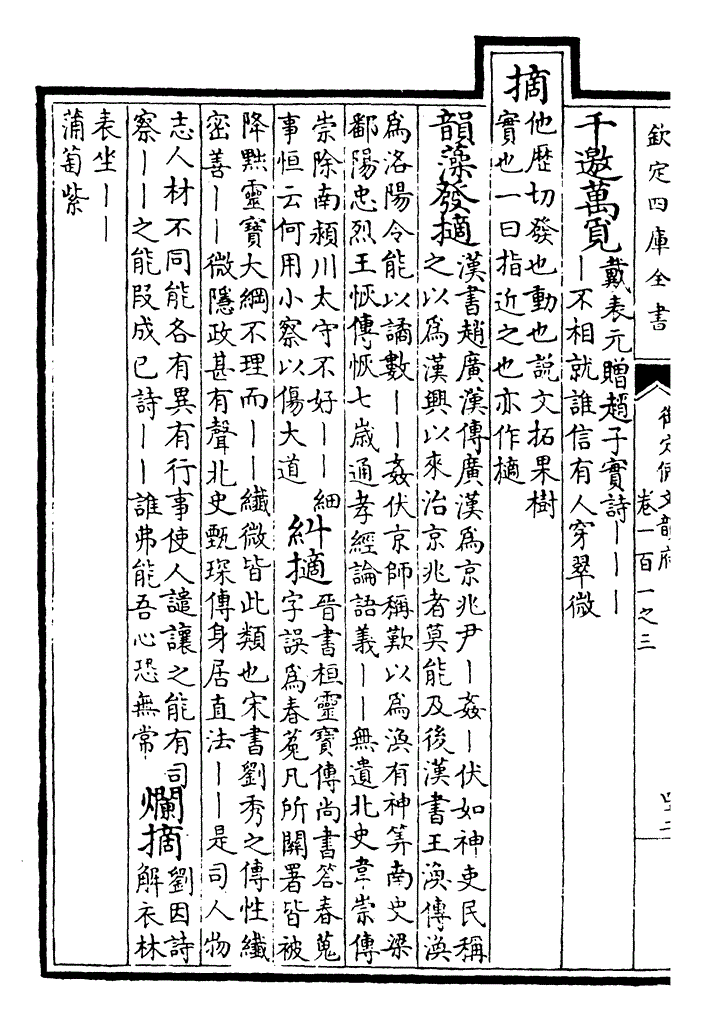 欽定四庫全書
御定佩文韻府
卷一百一之三
千邀萬覓
戴表元贈趙子實詩丨丨丨
丨不相就誰信有人穿翠微
摘
他歴切發也動也説文拓果樹
實也一曰指近之也亦作擿
韻藻
發擿
漢書趙廣漢傳廣漢為京兆尹丨姦丨伏如神吏民稱
之以為漢興以來治京兆者莫能及後漢書王渙傳渙
為洛陽令能以譎數丨丨姦伏京師稱歎以為渙有神筭南史梁
鄱陽忠烈王恢傳恢七歳通孝經論語義丨丨無遺北史韋崇傳
崇除南潁川太守不好丨丨細
事恒云何用小察以傷大道
糾擿
晉書桓靈寳傳尚書答春蒐
字誤為春菟凡所關署皆被
降黜靈寶大綱不理而丨丨纎微皆此類也宋書劉秀之傳性纎
密善丨丨微隱政甚有聲北史甄琛傳身居直法丨丨是司人物
志人材不同能各有異有行事使人譴讓之能有司
察丨丨之能段成己詩丨丨誰弗能吾心恐無常
爛摘
劉因詩
解衣林
表坐丨丨
蒲萄紫